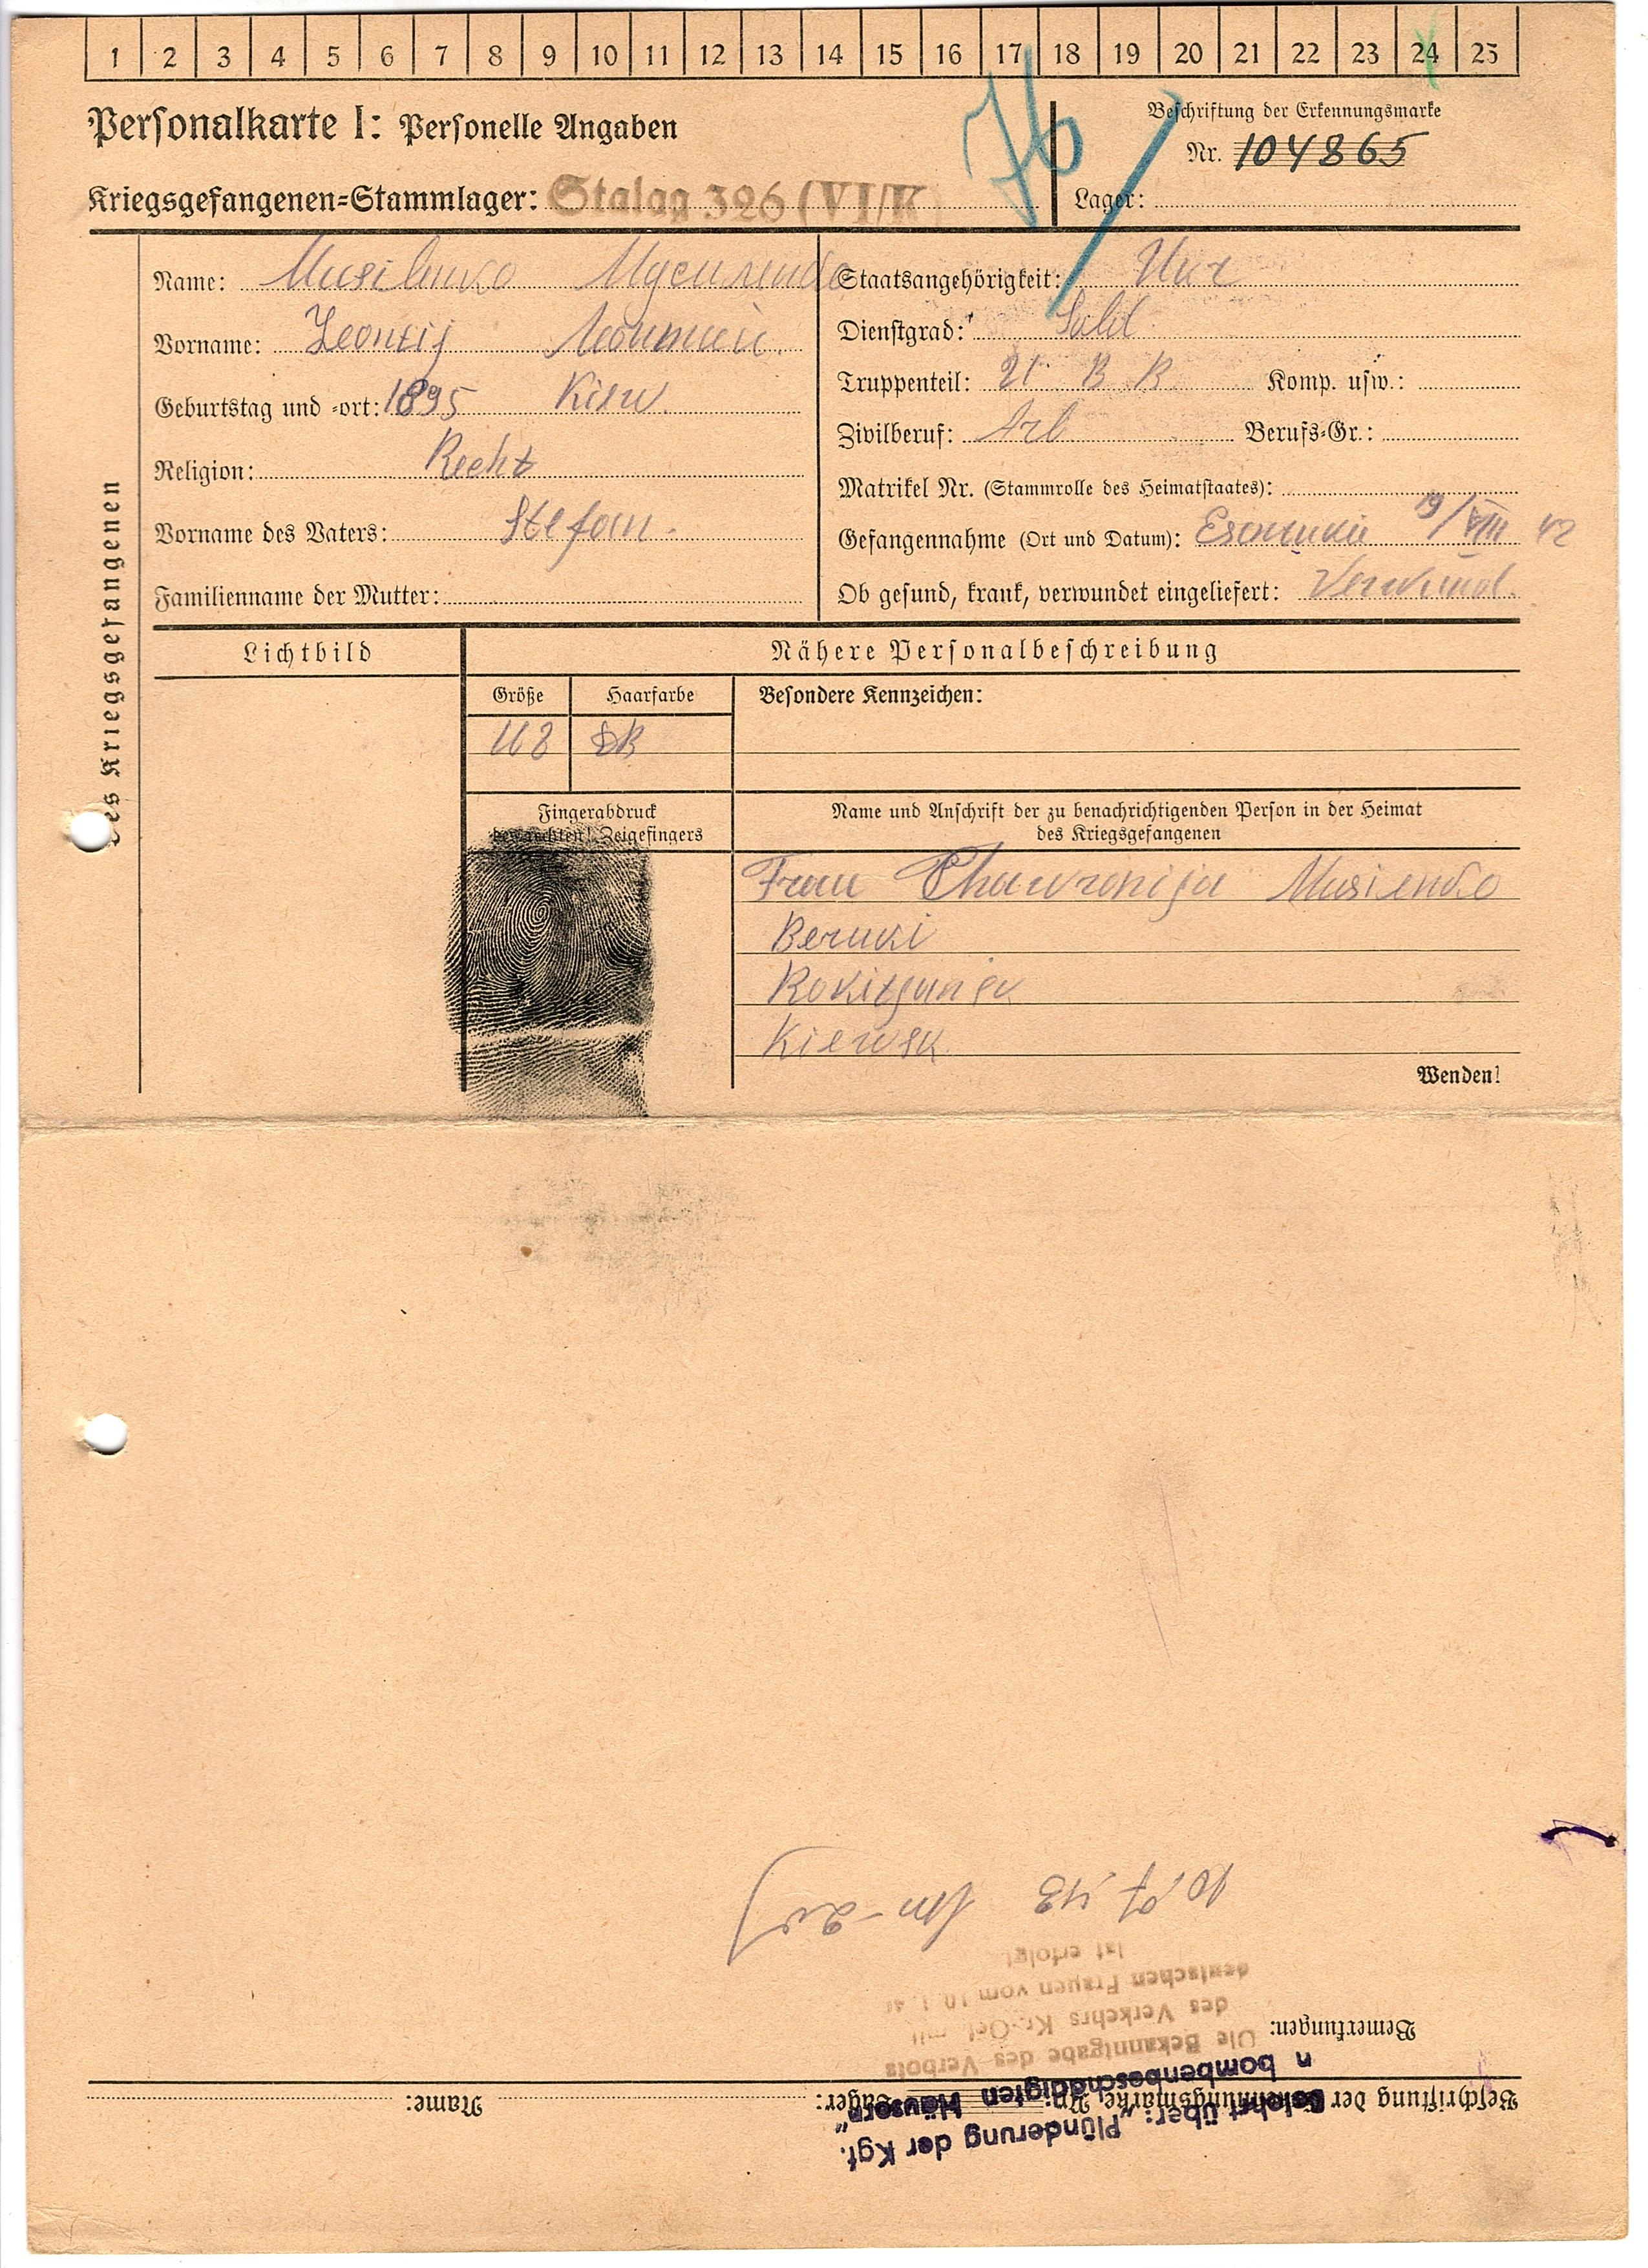 1 2 3 4 5 6 7 8 9 10 11 12 13 14 15 16 17 18 19 20 21 22 23 24 25
Personalkarte I: Personelle Angaben
76
Beschriftung der Erkennungsmarke
Nr. 104865
Kriegsgefangenen-Stammlager: Stalag 326 (VI/K)
Lager:
des Kriegsgefangenen
Name: Musilenko
Vorname: Leontij
Geburtstag und -ort: 1895 Kiew
Religion: Recht
Vorname des Vaters: Stefan
Familienname der Mutter:
Staatsangehörigkeit: Ukr
Dienstgrad: Sold.
Truppenteil: 21 B R Komp. usw.:
Zivilberuf: Arb Berufs-Gr.:
Matrikel Nr. (Stammrolle des Heimatstaates):
Gefangennahme (Ort und Datum): 19/VIII 42
Ob gesund, krank, verwundet eingeliefert: Verwund.
Lichtbild
Nähere Personalbeschreibung
Größe Haarfarbe Besondere Kennzeichen:
168 DB
Fingerabdruck
des rechten! Zeigefingers
Name und Anschrift der zu benachrichtigenden Person in der Heimat
des Kriegsgefangenen
Frau Chawronija Musienko
Kiewsk
Wenden!
Belehrt über: „Plünderung der Kgf.
n bombenbeschädigten Häusern"
Beschriftung der Erkennungsmarke, Nr. Lager: Name:
Bemerkungen:
Die Bekanntgabe des Verbots
des Verkehrs Kr.-Gef. mit
deutschen Frauen vom 10.1.4
ist erfolgt
10.7.43